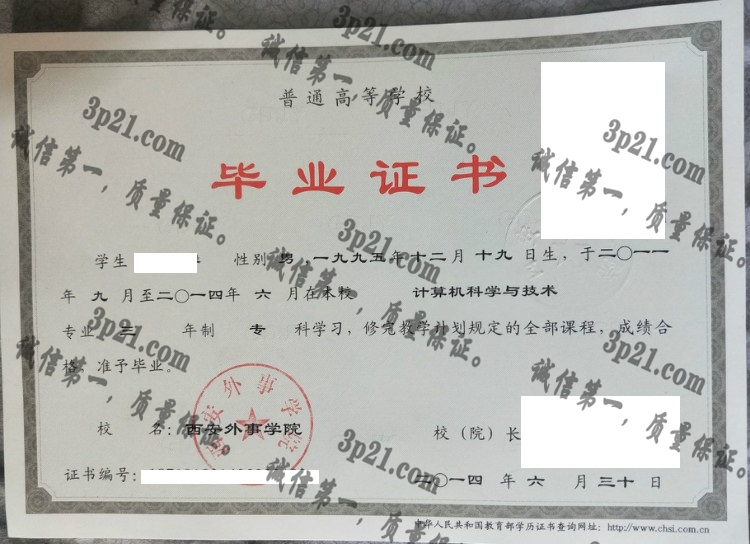 3p21.com
诚信第一，质量保证。
普通高等学校
3p21.com
诚信第一，质量保证。
3p21.com
诚信第一，质量保证。
毕业证书
学生 性别 男 一九九五年十二月十九日生，于二〇一一
年 九 月至二〇一四年 六 月在本校 计算机科学与技术
专业 三 年制 专 科学习，修完教学计划规定的全部课程，成绩合
格，准予毕业。
3p21.com
诚信第一，质量保证。
3p21.com
诚信第一，质量保证。
3p21.com
诚信第一，质量保证。
西安外事学院
校 名：西安外事学院 校（院）长
3p21.com
诚信第一，质量保证。
证书编号：
二〇一四 年 六 月 三十 日
中华人民共和国教育部学历证书查询网址：http://www.chsi.com.cn